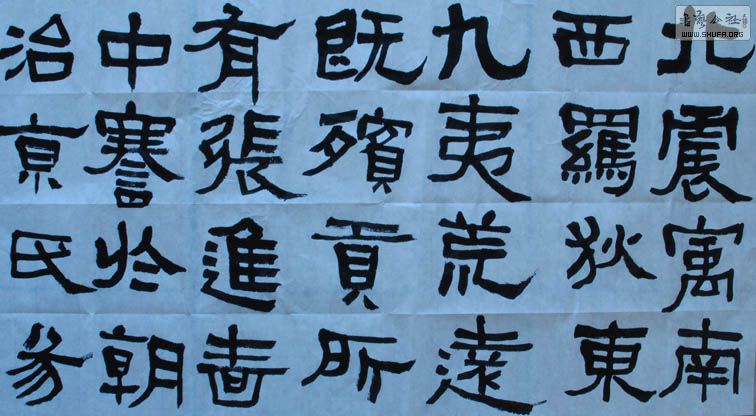 北震寓南
西羈狄東
九夷荒遠
既殯貢所
有張進啬
中謇於朝
治京氏易
書藝公社
WWW.SHUFA.ORG